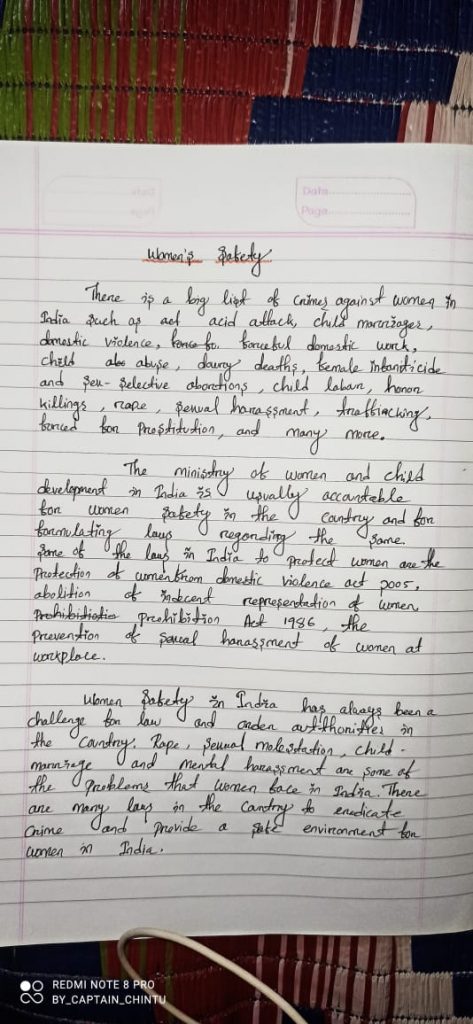 Date
Page
Women's Safety
There is a big list of crimes against women in
India such as act acid attack, child marriages,
domestic violence, forceful domestic work,
child abuse, dowry deaths, female infanticide
and sex-selective abortions, child labour, honor
killings, rape, sexual harassment, trafficking,
forced for prostitution, and many more.
The ministry of women and child
development in India is usually accountable
for women safety in the country and for
formulating laws regarding the same.
Some of the laws in India to protect women are the
Protection of women from domestic violence act 2005,
abolition of indecent representation of women
Prohibition Act 1986, the
prevention of sexual harassment of women at
workplace.
Women safety in India has always been a
challenge for law and order authorities in
the country. Rape, sexual molestation, child-
marriage and mental harassment are some of
the problems that women face in India. There
are many laws in the country to eradicate
crime and provide a safe environment for
women in India.
REDMI NOTE 8 PRO
BY_CAPTAIN_CHINTU